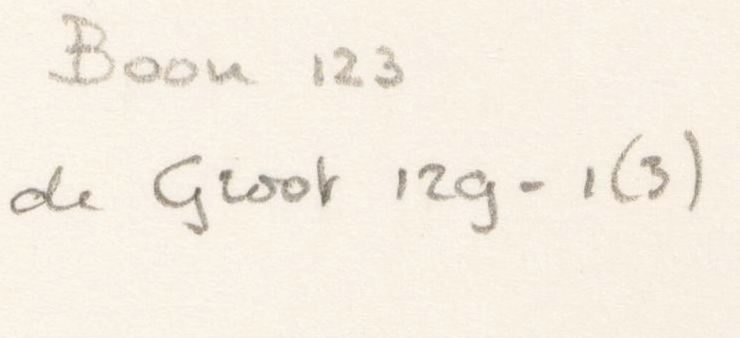 Boon 123
de Groot 129 - 1(3)